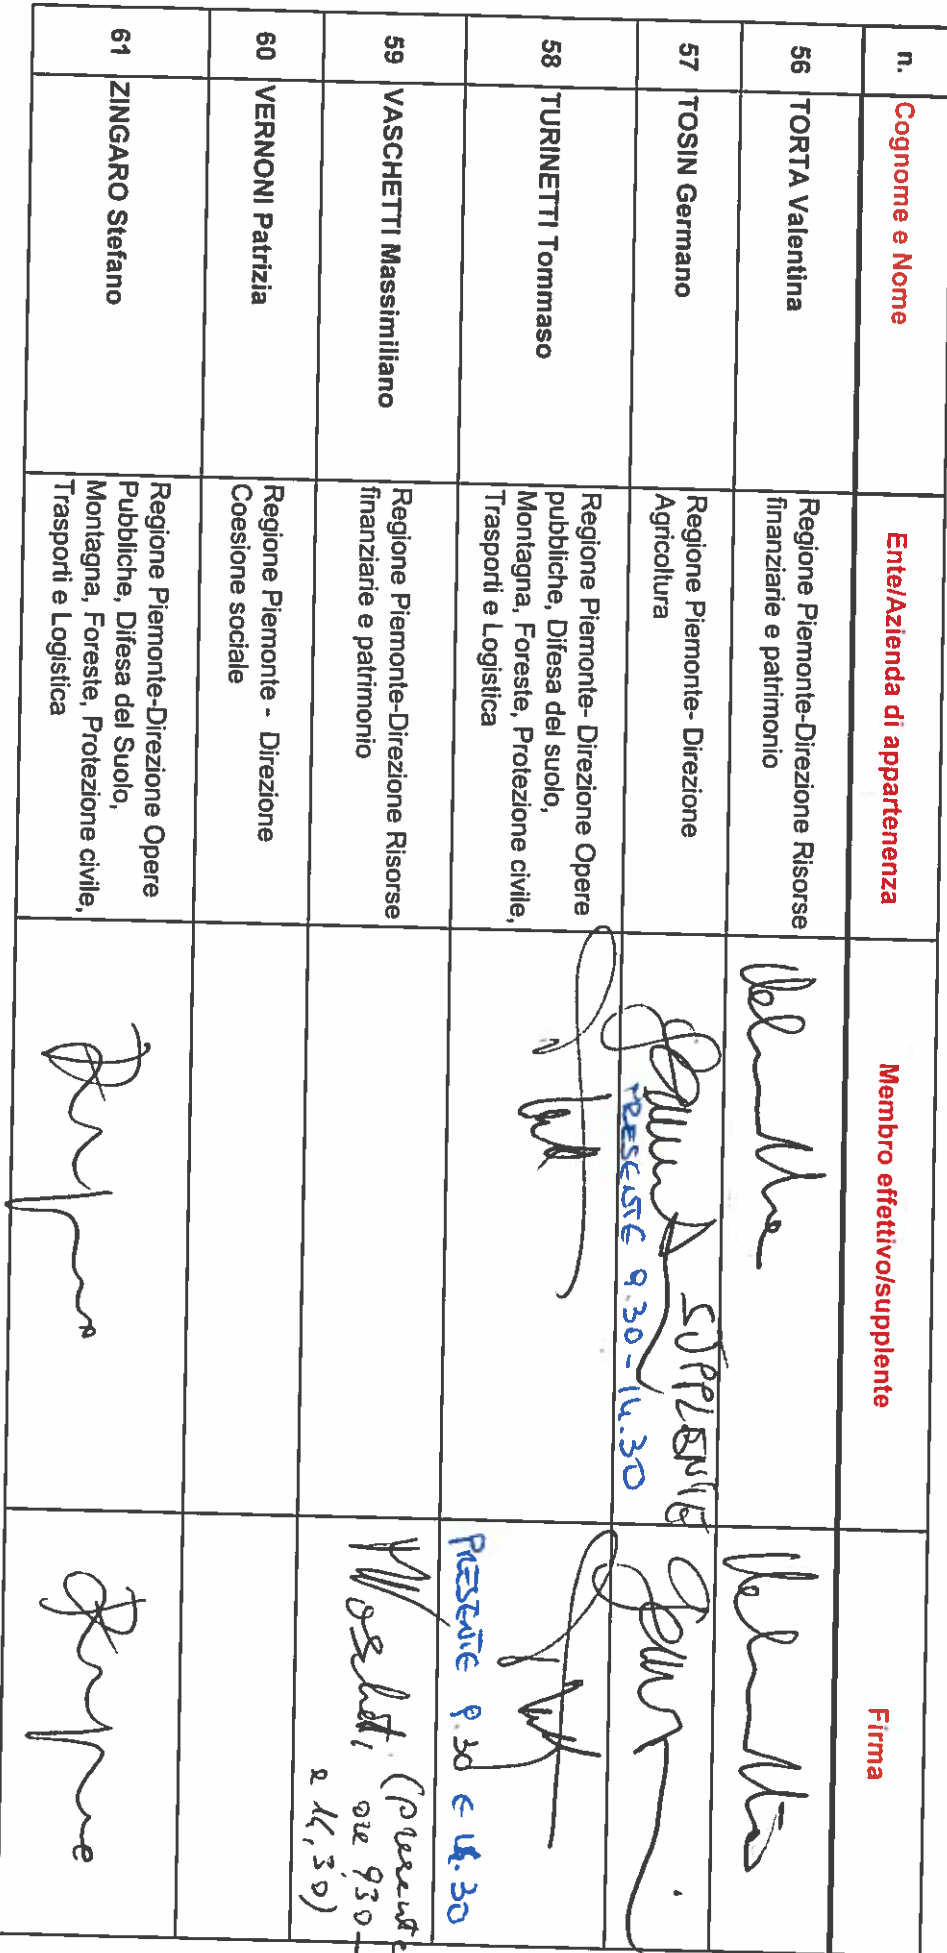 n. Cognome e Nome Ente/Azienda di appartenenza Membro effettivo/supplente Firma
56 TORTA Valentina Regione Piemonte-Direzione Risorse
finanziarie e patrimonio
57 TOSIN Germano Regione Piemonte- Direzione
Agricoltura
SUPPLENTE
PRESENTE 9.30-14.30
58 TURINETTI Tommaso Regione Piemonte- Direzione Opere
pubbliche, Difesa del suolo,
Montagna, Foreste, Protezione civile,
Trasporti e Logistica
PRESENTE 9.30 E 14.30
59 VASCHETTI Massimiliano Regione Piemonte-Direzione Risorse
finanziarie e patrimonio
(presente
ore 9,30-
e 14,30)
60 VERNONI Patrizia Regione Piemonte - Direzione
Coesione sociale
61 ZINGARO Stefano Regione Piemonte-Direzione Opere
Pubbliche, Difesa del Suolo,
Montagna, Foreste, Protezione civile,
Trasporti e Logistica